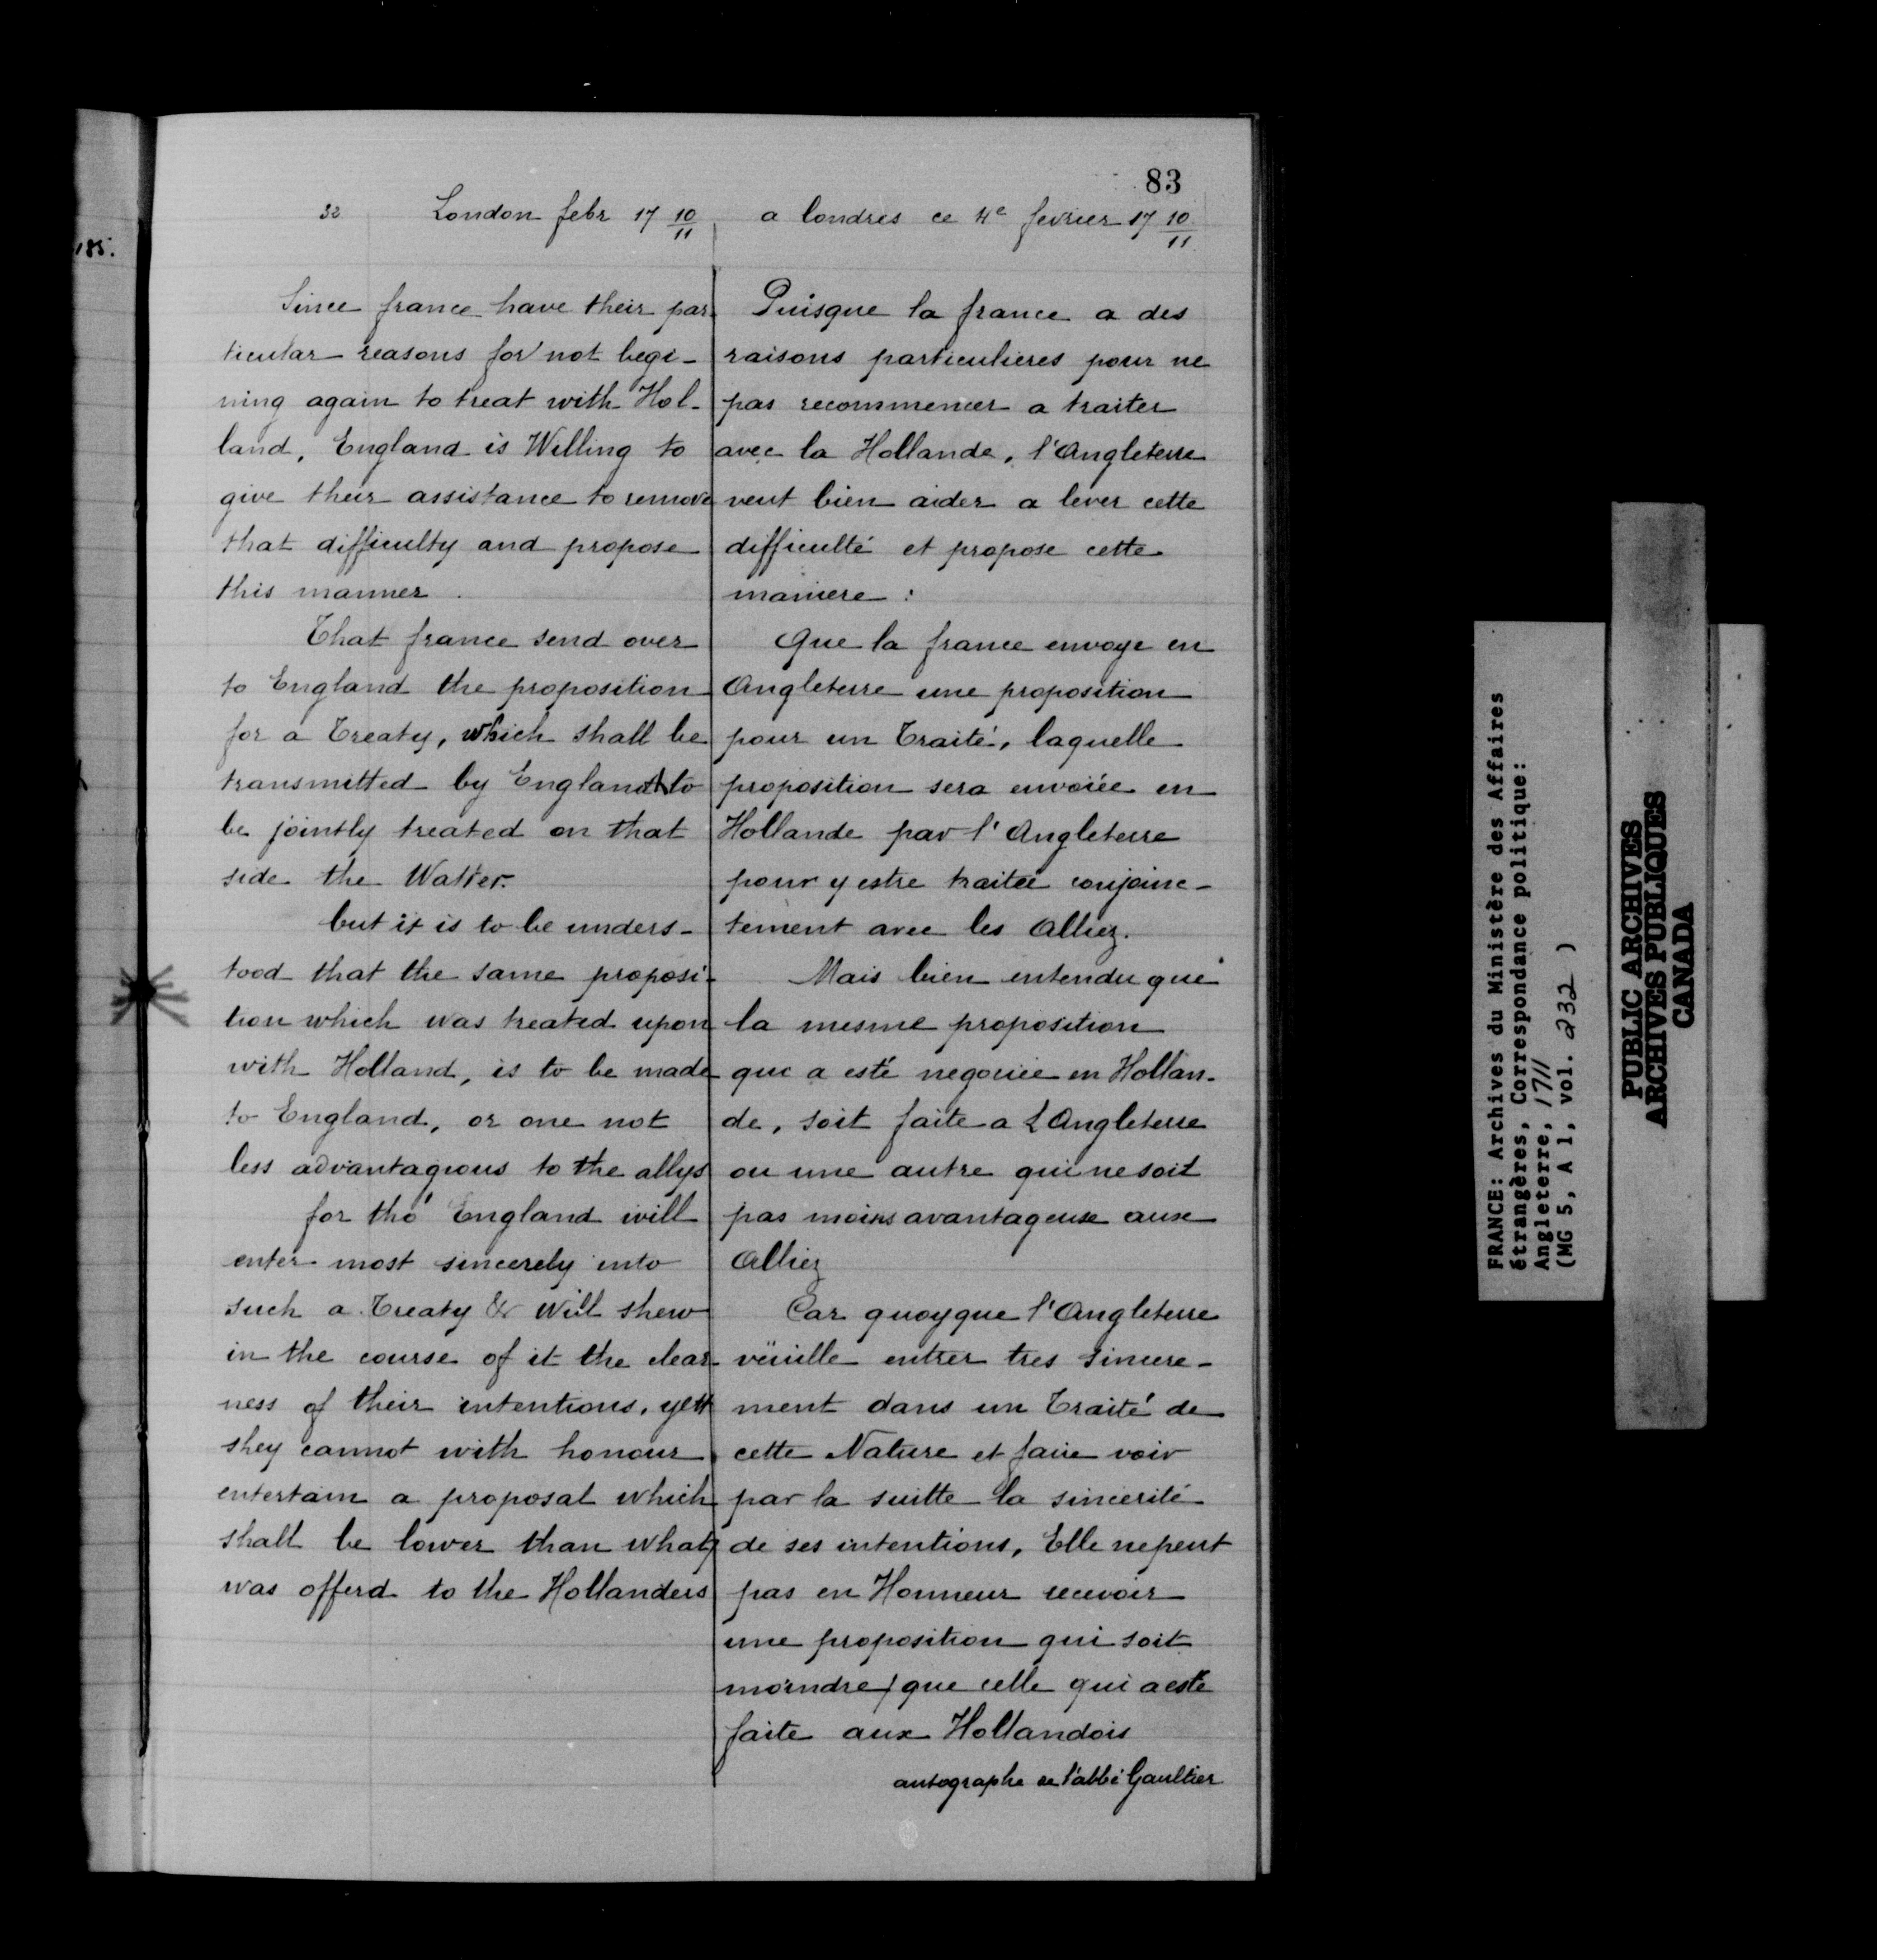 83
32 London febr 17 10/11
Since france have their par-
ticular reasons for not begi-
ning again to treat with Hol-
land, England is Willing to
give their assistance to remove
that difficulty and propose
this manner.
That france send over
to England the proposition
for a Treaty, which shall be
transmitted by England to
be jointly treated on that
side the Watter.
but it is to be unders-
tood that the same proposi-
tion which was treated upon
with Holland, is to be made
to England, or one not
less advantagious to the allys
for tho' England will
enter most sincerely into
such a Treaty & will shew
in the course of it the clear-
ness of their intentions, yett
they cannot with honour
entertain a proposal which
shall be lower than what
was offerd to the Hollanders
a londres ce 4e fevrier 17 10/11
Puisque la france a des
raisons particulieres pour ne
pas recommencer a traiter
avec la Hollande, l'Angleterre
veut bien aider a lever cette
difficulté et propose cette
maniere :
Que la france envoye en
Angleterre une proposition
pour un Traité, laquelle
proposition sera envoiée en
Hollande par l'Angleterre
pour y estre traitée conjoinc-
tement avec les Alliez.
Mais bien entendu que
la mesme proposition
qui a esté negociée en Hollan-
de, soit faite a L'Angleterre
ou une autre qui ne soit
pas moins avantageuse aux
Alliez
Car quoyque l'Angleterre
vëuille entrer tres sincere-
ment dans un Traité de
cette Nature et faire voir
par la suitte la sincerité
de ses intentions, Elle ne peut
pas en Honneur recevoir
une proposition qui soit
moindre que celle qui a esté
faite aux Hollandois
autographe de l'abbé Gaultier
185.
FRANCE: Archives du Ministère des Affaires
étrangères, Correspondance politique:
Angleterre, 1711
(MG 5, A 1, vol. 232 )
PUBLIC ARCHIVES
ARCHIVES PUBLIQUES
CANADA